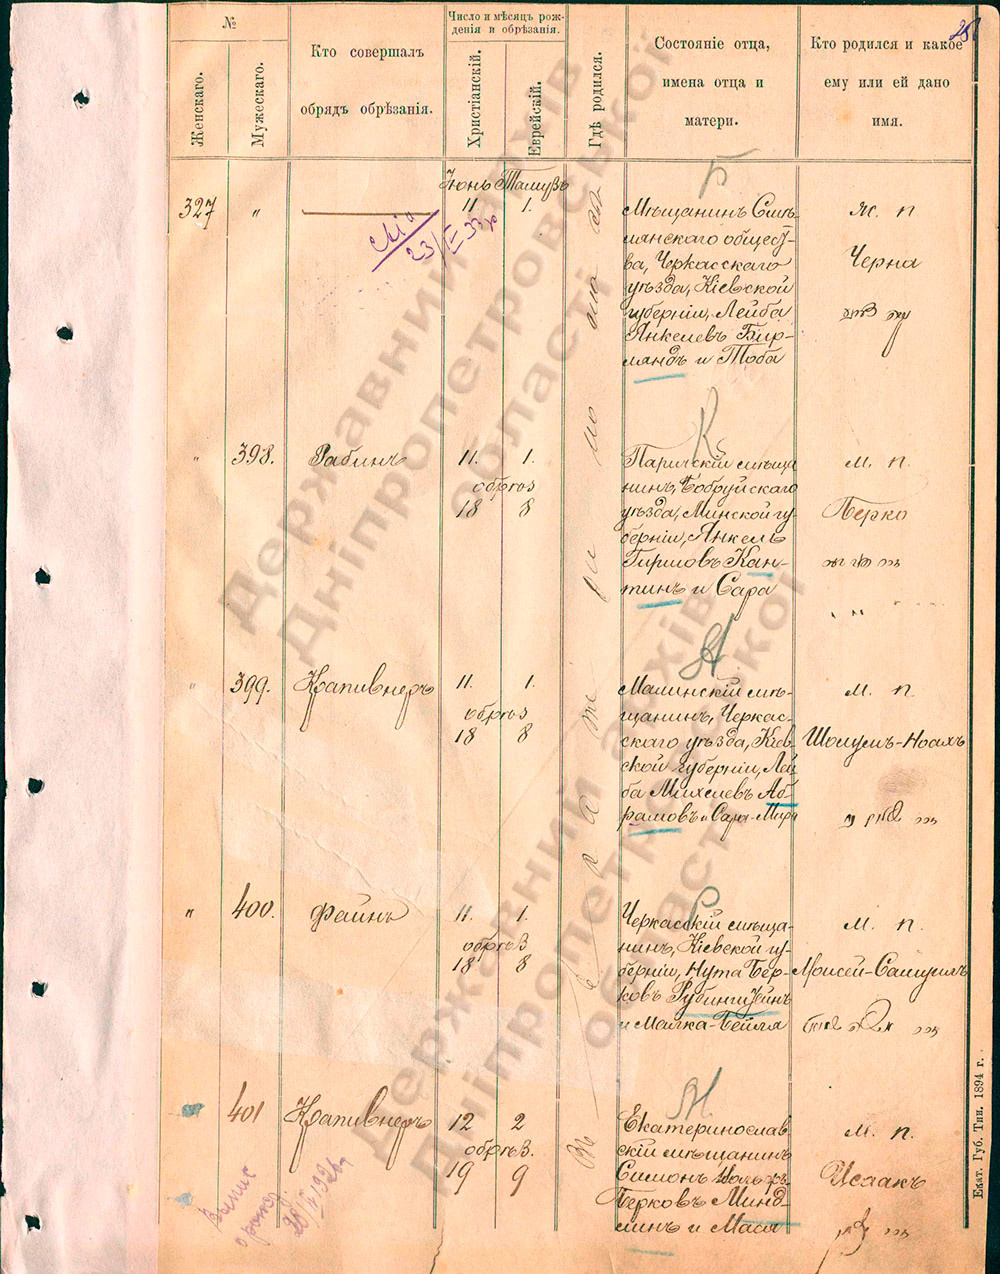 №
Женскаго.
Мужескаго.
Кто совершалъ
обрядъ обрѣзанія.
Число и мѣсяцъ рож-
денія и обрѣзанія.
Христіанскій.
Еврейскій.
Гдѣ родился.
Состояніе отца,
имена отца и
матери.
Кто родился и какое
ему или ей дано
имя.
Іюнь Тамузъ
327 " 11. 1.
Б
Мѣщанинъ Смѣ-
лянскаго общест-
ва, Черкасскаго
уѣзда, Кіевской
губерніи, Лейба
Янкелевъ Бир-
мандъ и Тоба
ж. п.
Черна
" 398. Рабинъ 11. 1.
обрѣз
18 8
К
Паричскій мѣща
нинъ, Бобруйскаго
уѣзда, Минской гу-
берніи, Янкель
Гиршовъ Кан-
тинъ и Сара
м. п.
Берко
" 399. Крапивнеръ 11. 1.
обрѣз
18 8
А
мѣ-
щанинъ, Черкас-
скаго уѣзда, Кіев
ской губерніи, Лей
ба Михелевъ Аб-
рамовъ и Сара-Мира
м. п.
Шолумъ-Ноахъ
" 400. Файнъ 11. 1.
обрѣз
18 8
Р
Черкасскій мѣща-
нинъ, Кіевской гу-
берніи, Нута Бер-
ковъ Рубинштейнъ
и Малка-Бейля
м. п.
Моисей-Самуилъ
401 Крапивнеръ 12 2
обрѣз.
19 9
М
Екатеринослав
скій мѣщанинъ
Симонъ
Берковъ Минд-
линъ и Мася
м. п.
Исаакъ
Екат. Губ. Тип. 1894 г.
Державний архів
Дніпропетровської
області
Державний архів
Дніпропетровської
області